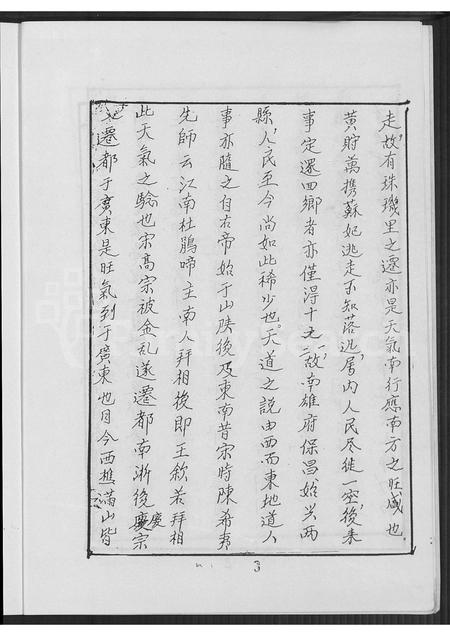 走,故有珠璣里之遷亦是天氣南行應南方之旺盛也
黃貯萬携蘇妃逃走不知落逃,厝内人民尽徙一空,後来
事定還四鄉者亦僅淂十之二三,故南雄府保昌始兴兩
縣,人民至今尚如此稀少也。天道之説由西而東地道人
事亦隨之自古帝始于山陕後及東南昔宋時陳希夷
先師云江南杜鵑啼主南人拜相後即王欽若拜相
此天氣之驗也宋高宗被金乱遂遷都南淅後慶宗
遷都于廣東是旺氣到于廣東也目今西樵滿山皆
慶
3